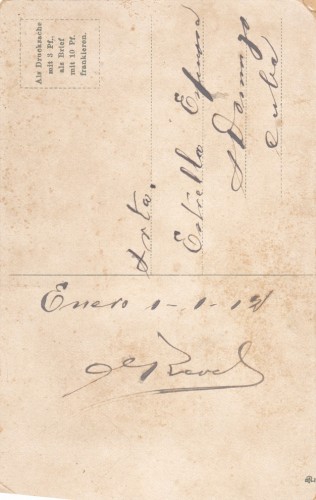 Als Drucksache
mit 3 Pf.,
als Brief
mit 10 Pf.
frankieren.
Srta.
Estrella
Sto Domingo
Cuba
Enero 1-1-12